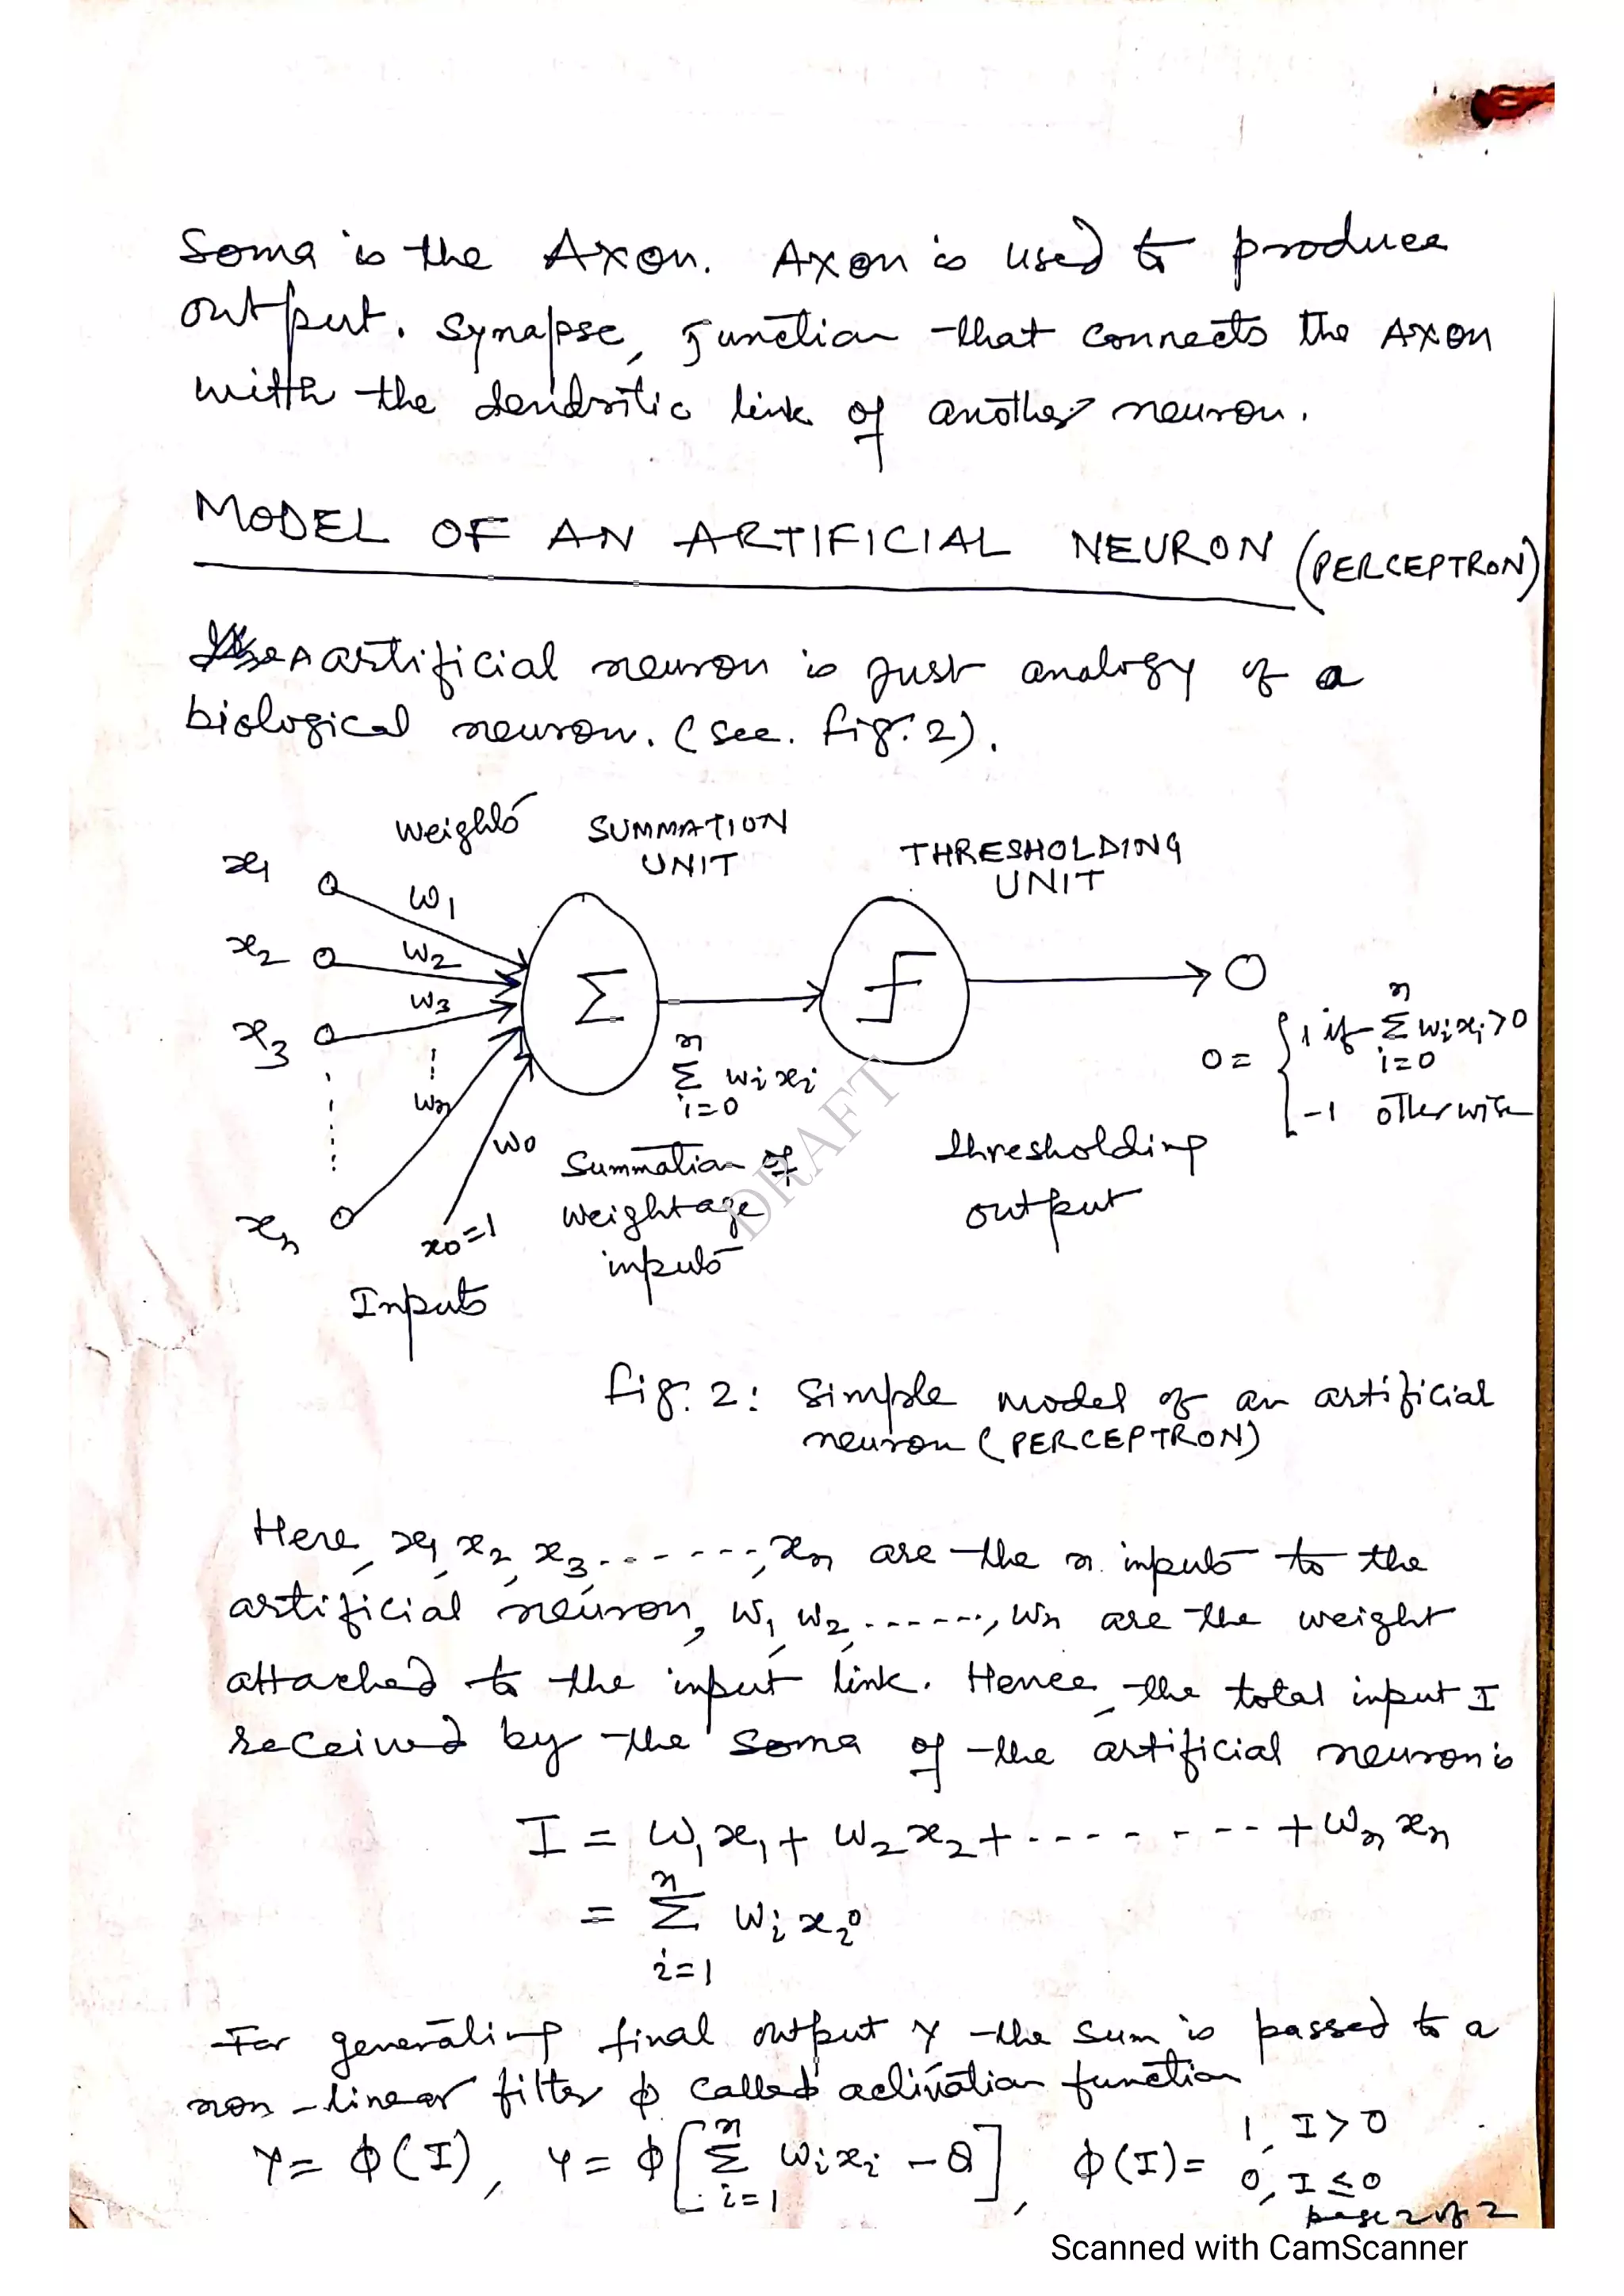 Soma is the Axon. Axon is used to produce
output. Synapse, Junction that connects the Axon
with the dendritic link of another neuron.
MODEL OF AN ARTIFICIAL NEURON (PERCEPTRON)
A artificial neuron is just analogy of a
biological neuron. (see. fig. 2).
Weights SUMMATION UNIT THRESHOLDING UNIT
x1 w1
x2 w2
x3 w3
Σ
O
wn
w0
xn
x0=1
Inputs
n Σ i=0 wi xi
Summation of
weightage
inputs
thresholding
output
O = { 1 if n Σ i=0 wi xi > 0
-1 otherwise
DRAFT
fig. 2: Simple model of an artificial
neuron (PERCEPTRON)
Here, x1, x2, x3, ......., xn are the n. inputs to the
artificial neuron, w1, w2, ......., wn are the weight
attached to the input link. Hence, the total input I
received by the soma of the artificial neuron is
I = w1 x1 + w2 x2 + ........ + wn xn
= n Σ i=1 wi xi
For generating final output Y the sum is passed to a
non-linear filter φ called activation function
Y = φ(I), Y = φ[ n Σ i=1 wi xi - θ ], φ(I) = 1, I > 0
0, I ≤ 0
page 2 of 2
Scanned with CamScanner